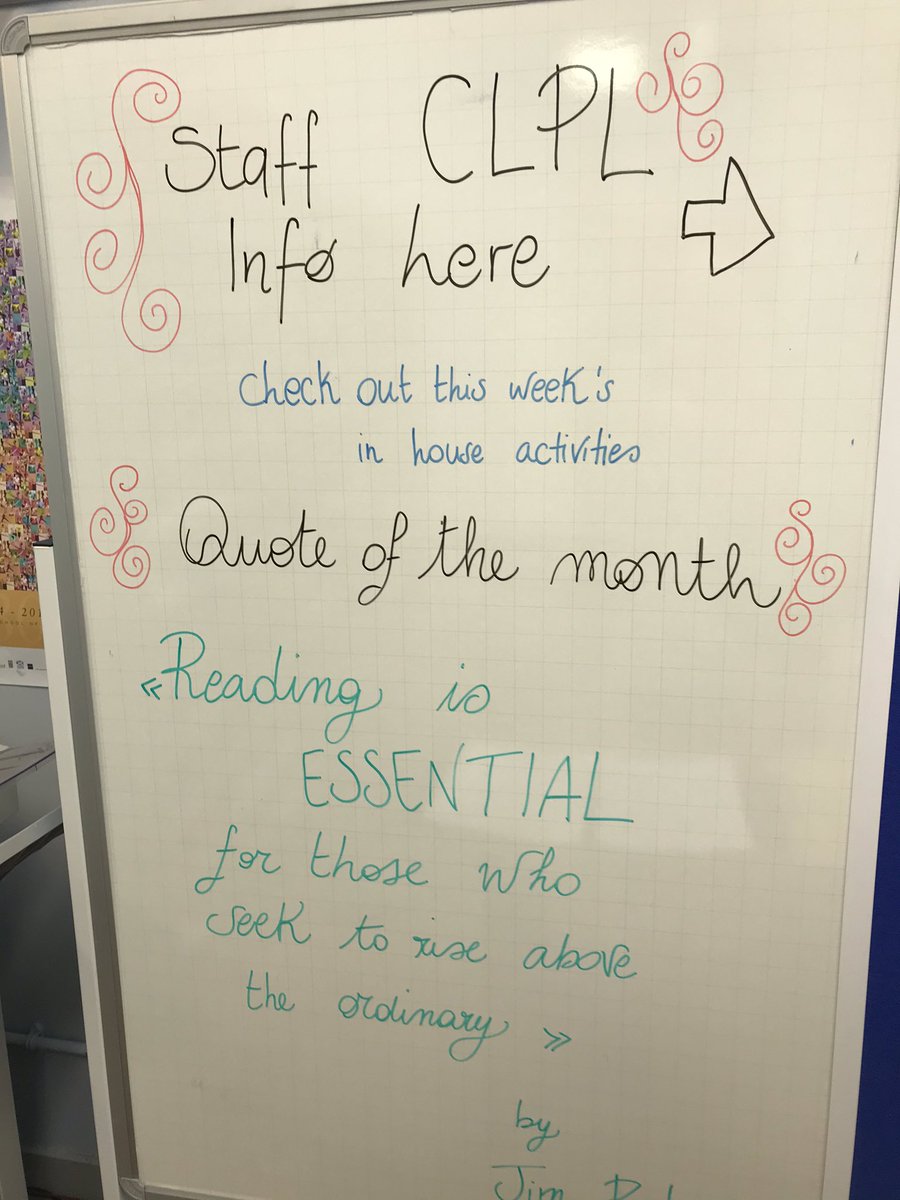 Staff CLPL
Info here
Check out this week's
in house activities
Quote of the month
«Reading is
ESSENTIAL
for those who
seek to rise above
the ordinary »
by
Jim